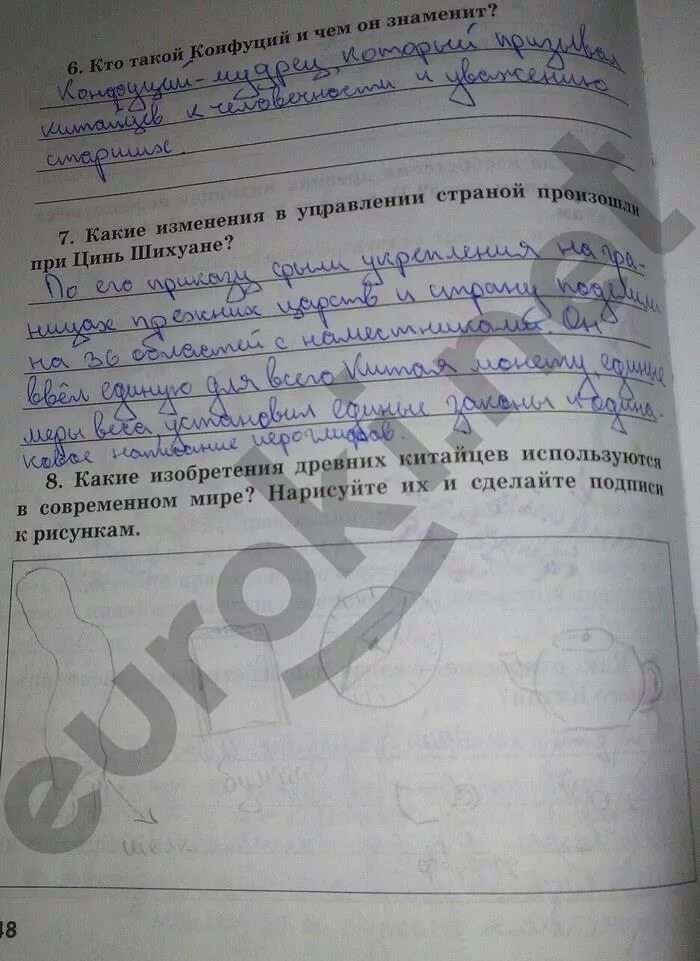 6. Кто такой Конфуций и чем он знаменит?
Конфуций-мудрец, который призывал
китайцев к человечности и уважению
старших.
7. Какие изменения в управлении страной произошли
при Цинь Шихуане?
По его приказу срыли укрепления на гра-
ницах прежних царств и страну поделили
на 36 областей с наместниками. Он
ввёл единую для всего Китая монету, единые
меры веса установил единые законы и одина-
ковое написание иероглифов.
8. Какие изобретения древних китайцев используются
в современном мире? Нарисуйте их и сделайте подписи
к рисункам.
бумага
шёлк
48
euroki.net